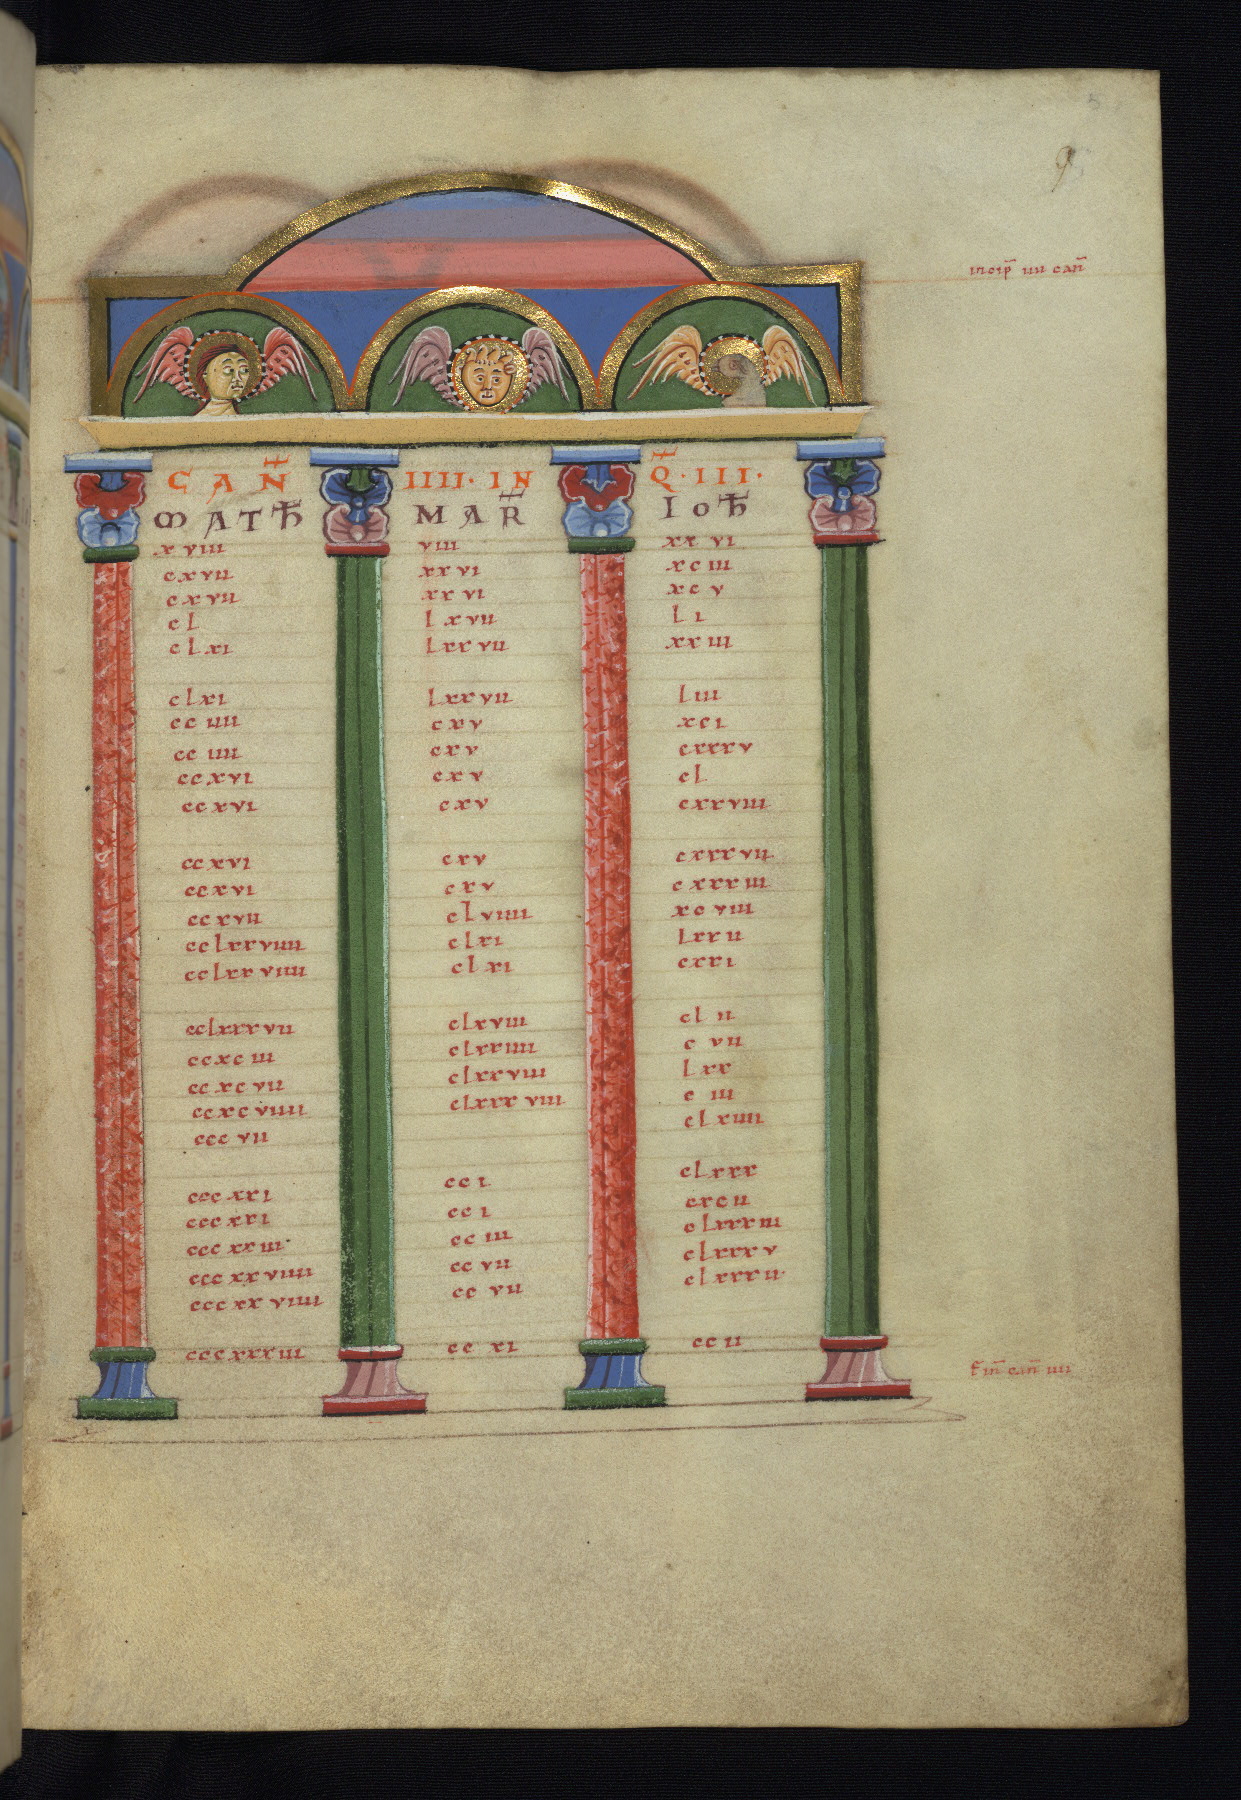 9
incip̄ iiii can̄
CAN̄ IIII · IN Q̄ · III ·
MATH̄ MAR̄ IOH̄
xviii viii xxvi
cxvii xxvi xciii
cxvii xxvi xcv
cl lxvii li
clxi lxxvii xxiii
clxi lxxvii liii
cciiii cxv xci
cciiii cxv cxxxv
ccxvi cxv cl
ccxvi cxv cxxviiii
ccxvi cxv cxxxvii
ccxvi cxv cxxxiii
ccxvii clviiii xcviii
cclxxviiii clxi lxxii
cclxxviiii clxi cxxi
cclxxxvii clxviii clii
ccxciii clxxiiii cvii
ccxcvii clxxviii lxx
ccxcviiii clxxxviii ciii
cccvii clxiiii
cccxxi cci clxxx
cccxxi cci cxcii
cccxxiii cciii clxxxiii
cccxxviiii ccvii clxxxv
cccxxviiii ccvii clxxxii
cccxxxiii ccxi ccii
Fin̄ can̄ iiii